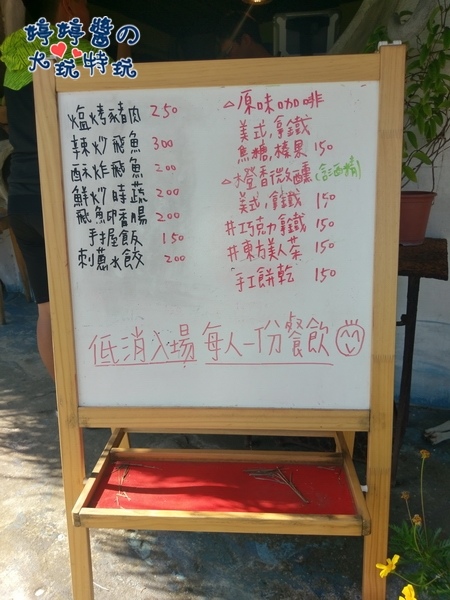 婷婷醬の
大玩特玩
爐烤豬肉 250
辣炒飛魚 300
酥炸飛魚 200
鮮炒時蔬 200
飛魚卵香腸 200
手抓飯 150
刺蔥水餃 200
△原味咖啡
美式,拿鐵
焦糖,榛果 150
△橙香微醺(含酒精)
美式,拿鐵 150
#巧克力拿鐵 150
#東方美人茶 150
手工餅乾 150
低消入場 每人一份餐飲